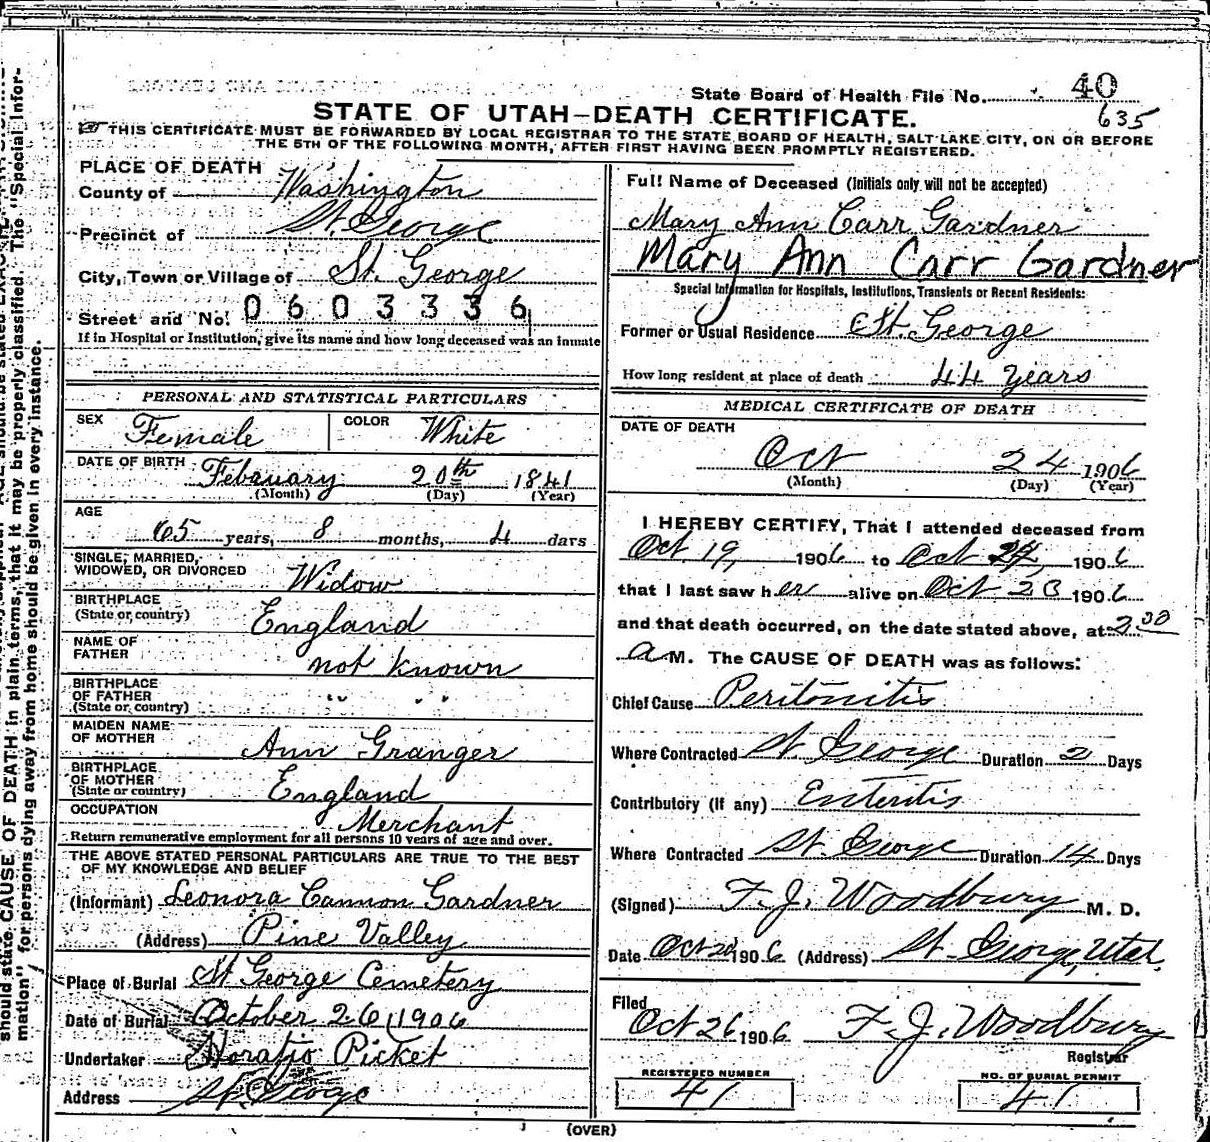 State Board of Health File No. 40
635
STATE OF UTAH—DEATH CERTIFICATE.
THIS CERTIFICATE MUST BE FORWARDED BY LOCAL REGISTRAR TO THE STATE BOARD OF HEALTH, SALT LAKE CITY, ON OR BEFORE
THE 5TH OF THE FOLLOWING MONTH, AFTER FIRST HAVING BEEN PROMPTLY REGISTERED.
PLACE OF DEATH
County of Washington
Precinct of St. George
City, Town or Village of St. George
Street and No. 0603336
If in Hospital or Institution, give its name and how long deceased was an inmate
PERSONAL AND STATISTICAL PARTICULARS
SEX Female COLOR White
DATE OF BIRTH Febauary 20th 1841
(Month) (Day) (Year)
AGE
65 years, 8 months, 4 days
SINGLE, MARRIED,
WIDOWED, OR DIVORCED Widow
BIRTHPLACE
(State or country) England
NAME OF
FATHER not known
BIRTHPLACE
OF FATHER " "
(State or country)
MAIDEN NAME
OF MOTHER Ann Granger
BIRTHPLACE
OF MOTHER
(State or country) England
OCCUPATION
Merchant
Return remunerative employment for all persons 10 years of age and over.
THE ABOVE STATED PERSONAL PARTICULARS ARE TRUE TO THE BEST
OF MY KNOWLEDGE AND BELIEF
(Informant) Leonora Cannon Gardner
(Address) Pine Valley
Place of Burial St George Cemetery
Date of Burial October 26, 1906
Undertaker Horatio Picket
Address St. George
Full Name of Deceased (Initials only will not be accepted)
Mary Ann Carr Gardner
Mary Ann Carr Gardner
Special Information for Hospitals, Institutions, Transients or Recent Residents:
Former or Usual Residence St. George
How long resident at place of death 44 years
MEDICAL CERTIFICATE OF DEATH
DATE OF DEATH
Oct 24 1906
(Month) (Day) (Year)
I HEREBY CERTIFY, That I attended deceased from
Oct 19, 1906 to Oct 24, 1906
that I last saw her alive on Oct 23 1906
and that death occurred, on the date stated above, at 2.00
a M. The CAUSE OF DEATH was as follows:
Chief Cause Peritonitis
Where Contracted St. George Duration 2 Days
Contributory (If any) Enteritis
Where Contracted St. George Duration 14 Days
(Signed) F. J. Woodbury M. D.
Date Oct 1906 (Address) St. George, Utah.
Filed
Oct 26 1906 F. J. Woodbury
Registrar
REGISTERED NUMBER
41
NO. OF BURIAL PERMIT
41
(OVER)
should state CAUSE OF DEATH in plain terms, that it may be properly classified. The "Special Infor-
mation" for persons dying away from home should be given in every instance.